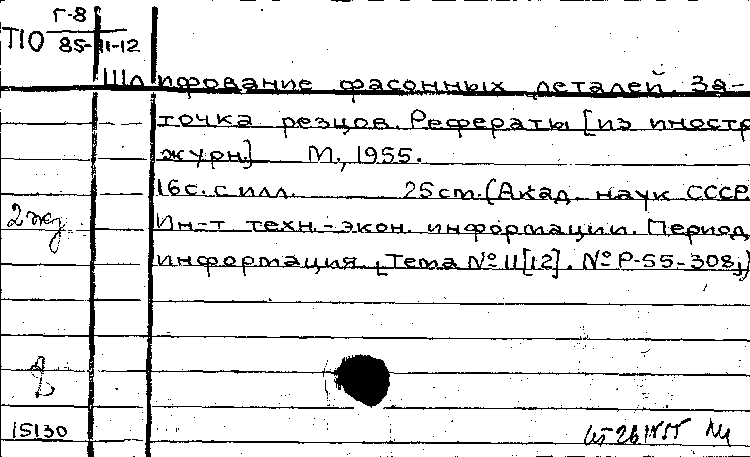 Г-8
Т10 85-11-12
Шлифование фасонных деталей. За-
точка резцов. Рефераты [из иностр
журн.] М., 1955.
16с. с илл. 25см. (Акад. наук СССР
2 экз
Ин-т техн.-экон. информации. Период.
информация. Тема № 11[12]. № Р-55-308)
15130